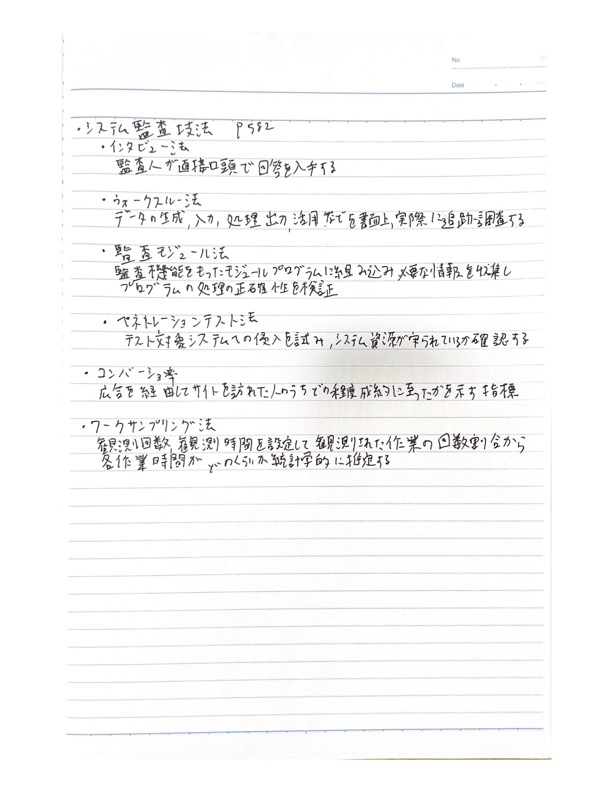 No.
Date
・システム監査技法 P582
・インタビュー法
監査人が直接口頭で回答を入手する
・ウォークスルー法
データの生成,入力,処理,出力,活用までを書面上,実際に追跡調査する
・監査モジュール法
監査機能をもったモジュールプログラムに組み込み必要な情報を収集し
プログラムの処理の正確性を検証
・ペネトレーションテスト法
テスト対象システムへの侵入を試み,システム資源が守られているか確認する
・コンバージョン率
広告を経由してサイトを訪れた人のうちどの程度成約に至ったかを示す指標
・ワークサンプリング法
観測回数,観測時間を設定して観測された作業の回数割合から
各作業時間がどのくらいか統計学的に推定する